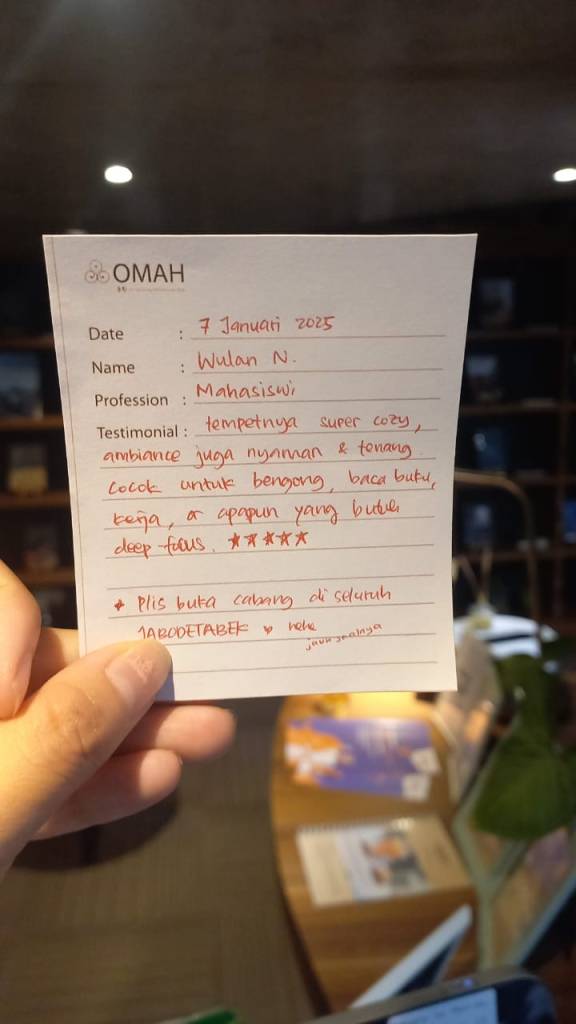 OMAH
Date : 7 Januari 2025
Name : Wulan N.
Profession : Mahasiswi
Testimonial : tempetnya super cozy,
ambiance juga nyaman & tenang
cocok untuk bengong, baca buku,
kerja, or apapun yang butuh
deep focus. ★★★★★
* Plis buka cabang di seluruh
JABODETABEK hehe